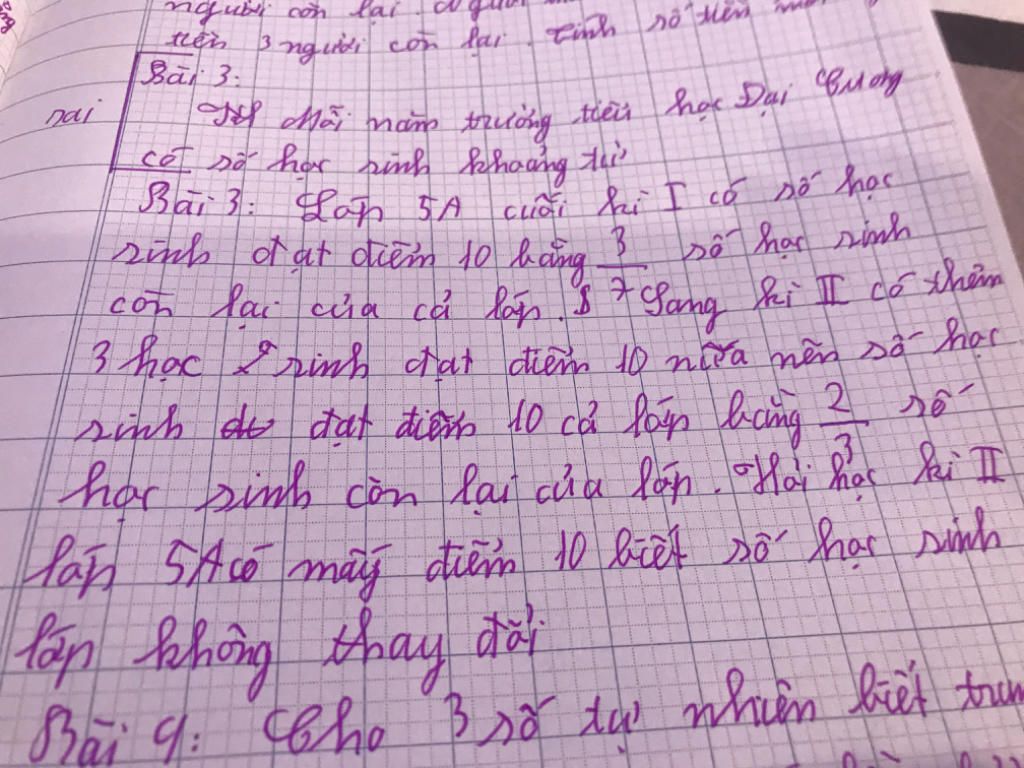 người còn lại.
tiền 3 người còn lại. Tính số tiền
Bài 3:
sai
Mỗi năm trường tiểu học Đại Cương
có số học sinh khoảng từ
Bài 3: Lớp 5A cuối kì I có số học
sinh đạt điểm 10 bằng 3/7 số học sinh
còn lại của cả lớp. Sang kì II có thêm
3 học sinh đạt điểm 10 nữa nên số học
sinh đạt điểm 10 cả lớp bằng 2/3 số
học sinh còn lại của lớp. Hỏi học kì II
lớp 5A có mấy điểm 10 biết số học sinh
lớp không thay đổi
Bài 4: Cho 3 số tự nhiên biết